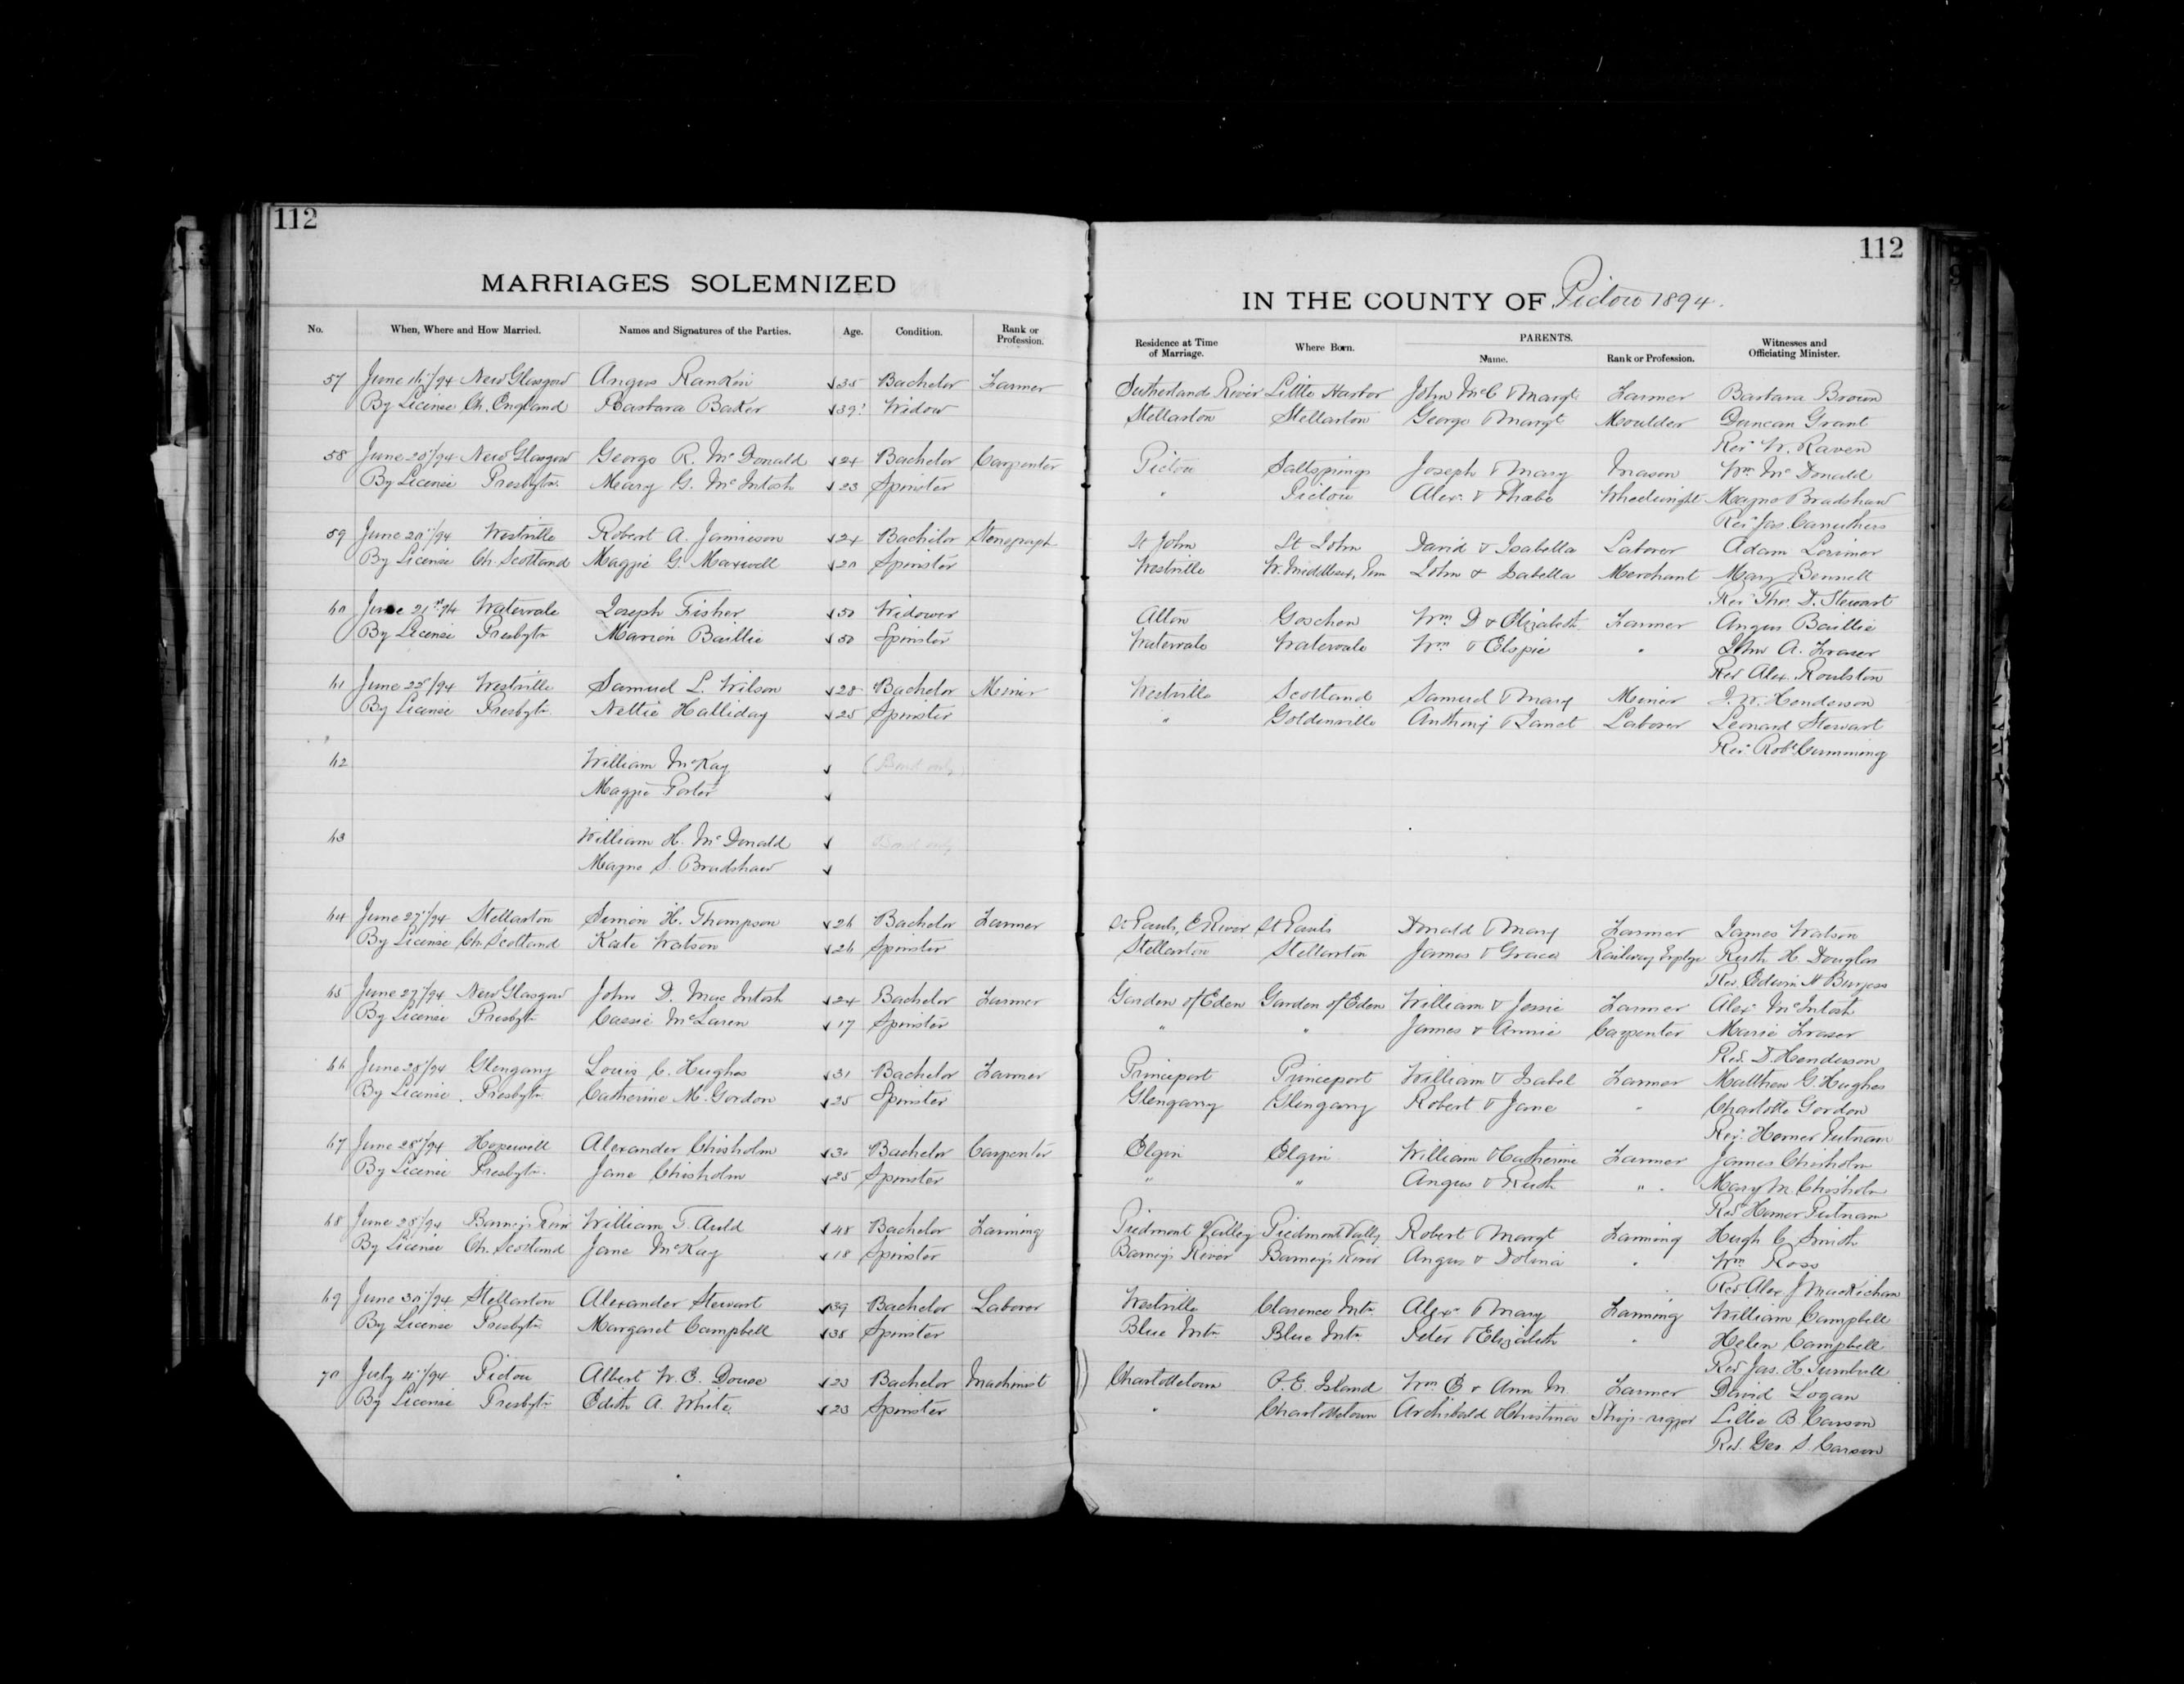 112
MARRIAGES SOLEMNIZED
No. When, Where and How Married. Names and Signatures of the Parties. Age. Condition. Rank or Profession.
57 June 16/94 New Glasgow Angus Rankin 35 Bachelor Farmer
By License Ch. England Barbara Baker 39 Widow
58 June 20/94 New Glasgow George R. McDonald 24 Bachelor Carpenter
By License Presbytn. Mary G. McIntosh 23 Spinster
59 June 20/94 Westville Robert A. Jamieson 24 Bachelor Stenograph
By License Ch. Scotland Maggie G. Maxwell 20 Spinster
60 June 21st/94 Watervale Joseph Fisher 50 Widower
By License Presbytn Marion Baillie 50 Spinster
61 June 25/94 Westville Samuel L. Wilson 28 Bachelor Miner
By License Presbytn Nettie Halliday 25 Spinster
62 William McKay (Bond only)
Maggie Porter
63 William H. McDonald Bond only
Mayne S. Bradshaw
64 June 27/94 Stellarton Simon H. Thompson 26 Bachelor Farmer
By License Ch. Scotland Kate Watson 26 Spinster
65 June 27/94 New Glasgow John D. MacIntosh 24 Bachelor Farmer
By License Presbytn Cassie McLaren 17 Spinster
66 June 28/94 Glengarry Louis C. Hughes 31 Bachelor Farmer
By License Presbytn Catherine M. Gordon 25 Spinster
67 June 28/94 Hopewell Alexander Chisholm 30 Bachelor Carpenter
By License Presbytn. Jane Chisholm 25 Spinster
68 June 28/94 Barneys River William T. Auld 48 Bachelor Farming
By License Ch. Scotland Jane McKay 18 Spinster
69 June 30/94 Stellarton Alexander Stewart 39 Bachelor Laborer
By License Presbytn. Margaret Campbell 38 Spinster
70 July 4/94 Pictou Albert W. E. Douse 23 Bachelor Machinist
By License Presbytn Edith A. White 23 Spinster
112
IN THE COUNTY OF Pictou 1894.
Residence at Time of Marriage. Where Born. PARENTS. Name. Rank or Profession. Witnesses and Officiating Minister.
Sutherlands River Little Harbor John McC & Margt Farmer Barbara Brown
Stellarton Stellarton George & Margt Moulder Duncan Grant
Rev W. Raven
Pictou Saltsprings Joseph & Mary Mason Wm McDonald
" Pictou Alex. & Phœbe Wheelwright Mayne Bradshaw
Rev Jas. Carruthers
St John St John David & Isabella Laborer Adam Lorimer
Westville John & Isabella Merchant Mary Bennett
Rev Tho. D. Stewart
Alton Goschen Wm D & Elizabeth Farmer Angus Baillie
Watervale Watervale Wm & Elspie " John A. Fraser
Rev Alex. Roulston
Westville Scotland Samuel & Mary Miner J. W. Henderson
" Goldenville Anthony & Janet Laborer Leonard Stewart
Rev. Robt Cumming
St Pauls, E River St Pauls Donald & Mary Farmer James Watson
Stellarton Stellarton James & Grace Railway Emplye Ruth H. Douglas
Rev. Edwin H Burgess
Garden of Eden Garden of Eden William & Jessie Farmer Alex McIntosh
" " James & Annie Carpenter Maria Fraser
Rev. D. Henderson
Princeport Princeport William & Isabel Farmer Matthew G. Hughes
Glengarry Glengarry Robert & Jane " Charlotte Gordon
Rev. Homer Putnam
Elgin Elgin William & Catherine Farmer James Chisholm
" " Angus & Ruth " Mary M. Chisholm
Rev Homer Putnam
Piedmont Valley Piedmont Vally Robert & Margt Farming Hugh C Smith
Barneys River Barneys River Angus & Dolina " Wm Ross
Rev Alex J MacKichan
Westville Clarence Mtn Alexr & Mary Farming William Campbell
Blue Mtn Blue Mtn Peter & Elizabeth " Helen Campbell
Rev Jas. H. Turnbull
Charlottetown P.E. Island Wm E & Ann M. Farmer David Logan
" Charlottetown Archibald & Christina Ship-rigger Lillie B. Carson
Rev. Geo. S. Carson